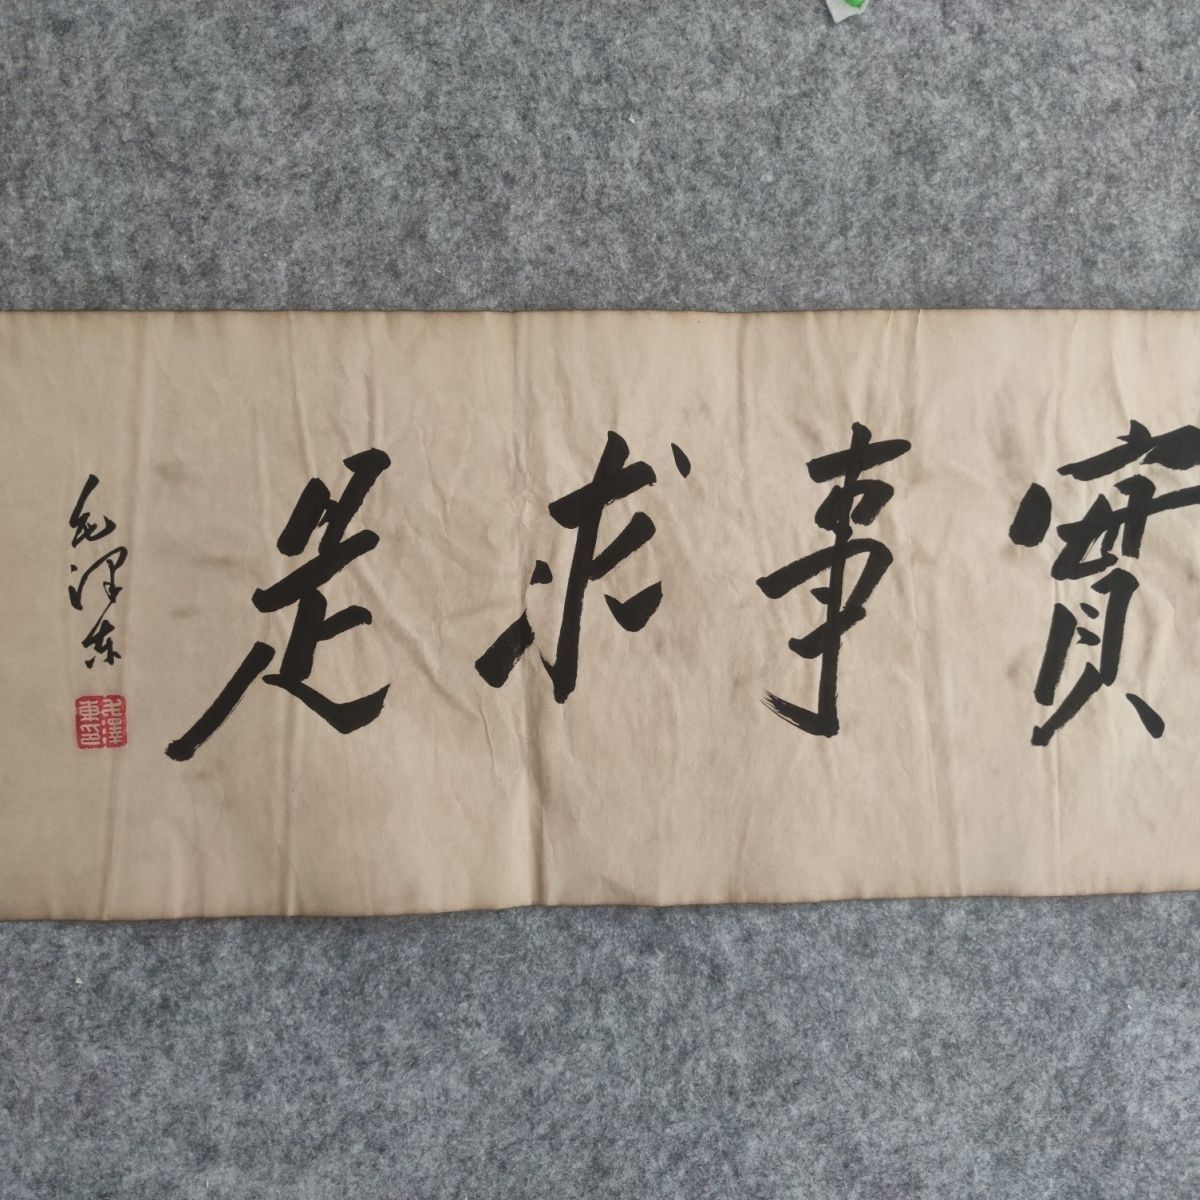 實事求是
毛澤东
毛澤東印